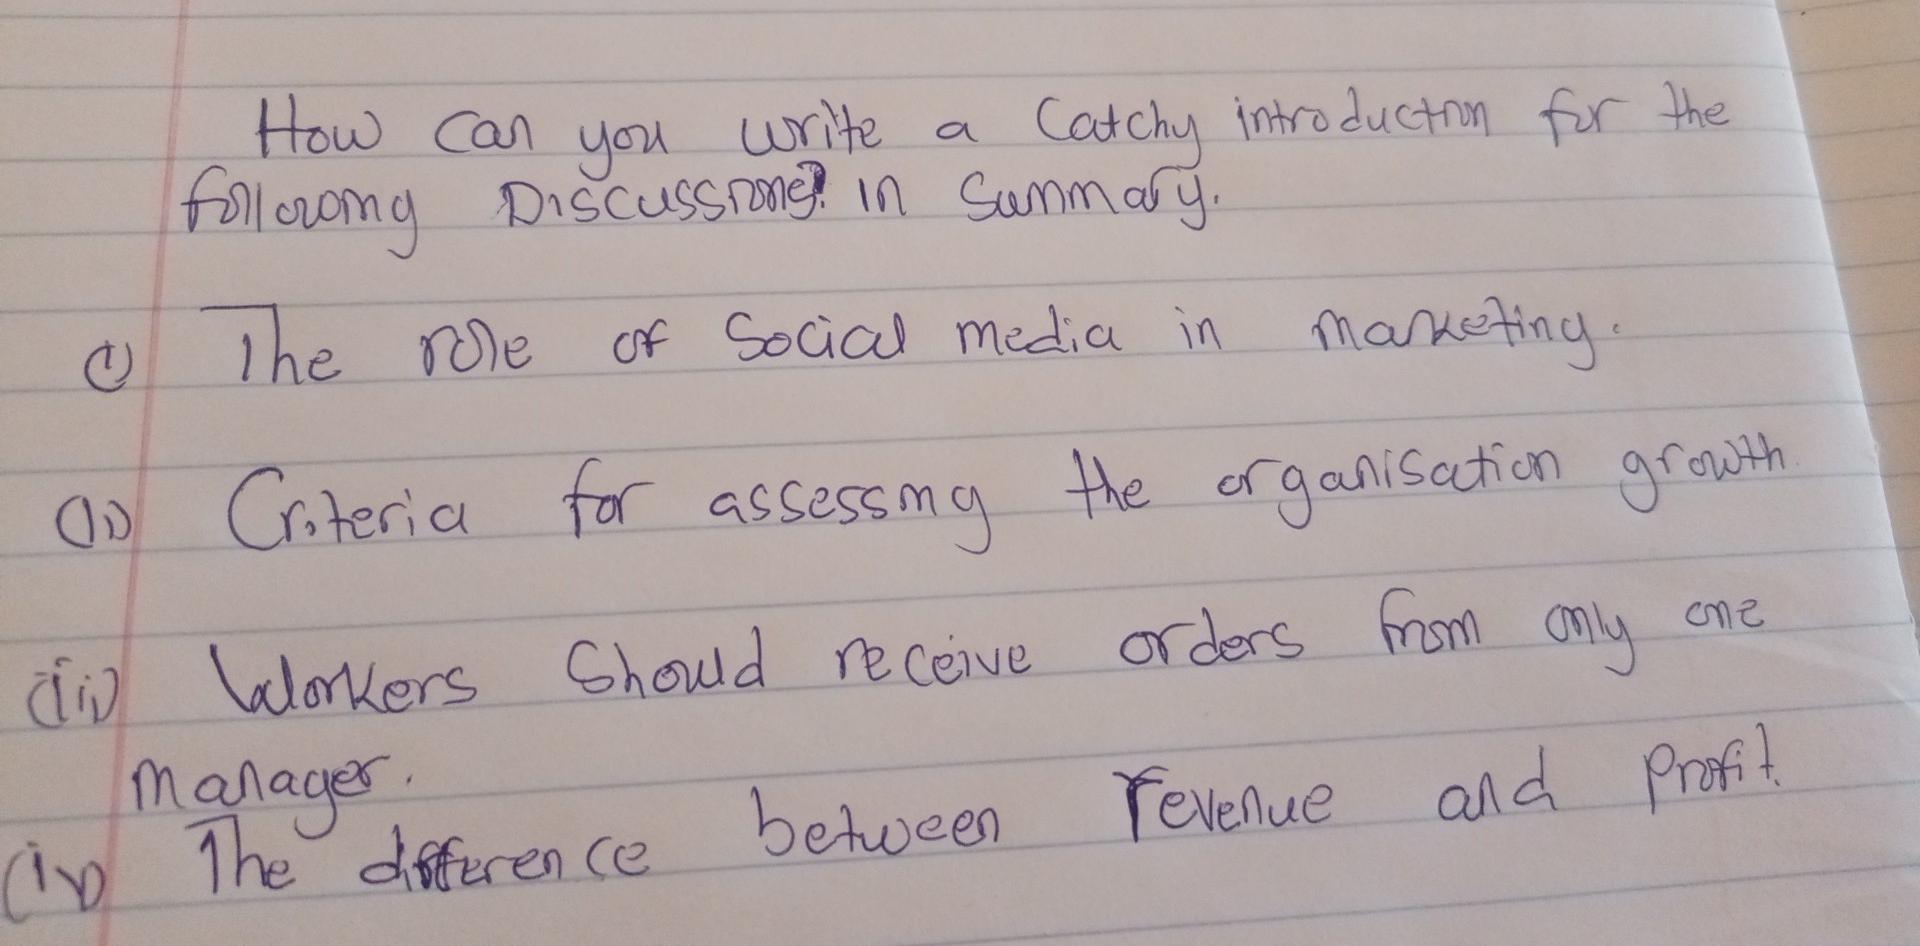 How can you write a Catchy introduction for the
following Discussions? in Summary.
(i) The role of Social media in marketing.
(ii) Criteria for assessing the organisation growth.
(iii) Workers Should receive orders from only one
manager.
(iv) The difference between revenue and profit.